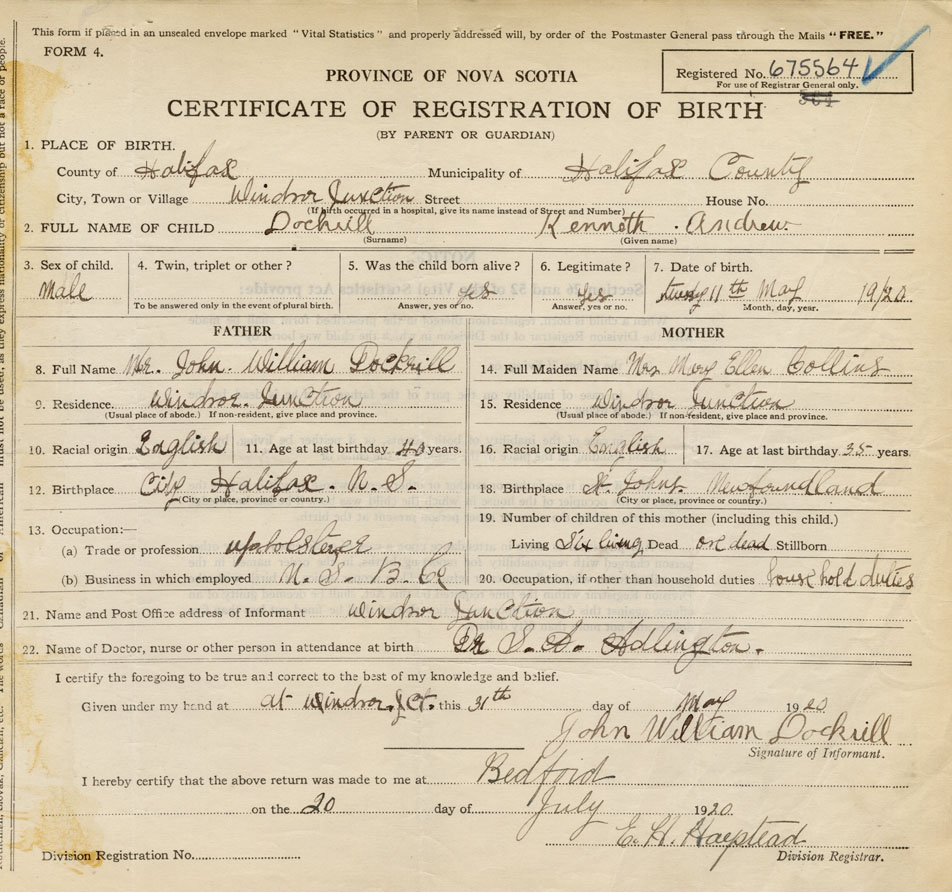 This form if placed in an unsealed envelope marked "Vital Statistics" and properly addressed will, by order of the Postmaster General pass through the Mails "FREE."
FORM 4.
Registered No. 675564
For use of Registrar General only.
564
PROVINCE OF NOVA SCOTIA
CERTIFICATE OF REGISTRATION OF BIRTH
(BY PARENT OR GUARDIAN)
1. PLACE OF BIRTH.
County of Halifax Municipality of Halifax County
City, Town or Village Windsor Junction Street House No.
(If birth occurred in a hospital, give its name instead of Street and Number)
2. FULL NAME OF CHILD Dockrill Kenneth Andrew
(Surname) (Given name)
3. Sex of child. 4. Twin, triplet or other? 5. Was the child born alive? 6. Legitimate? 7. Date of birth.
Male yes yes 11th May 1920
To be answered only in the event of plural birth. Answer, yes or no. Answer, yes or no. Month, day, year.
FATHER
8. Full Name Mr. John William Dockrill
9. Residence Windsor Junction
(Usual place of abode.) If non-resident, give place and province.
10. Racial origin English 11. Age at last birthday 40 years.
12. Birthplace City Halifax. N. S.
(City or place, province or country.)
13. Occupation:—
(a) Trade or profession upholsterer
(b) Business in which employed N. S. B. Co
MOTHER
14. Full Maiden Name Mrs Mary Ellen Collins
15. Residence Windsor Junction
(Usual place of abode.) If non-resident, give place and province.
16. Racial origin English 17. Age at last birthday 35 years.
18. Birthplace St. Johns. Newfoundland
(City or place, province or country.)
19. Number of children of this mother (including this child.)
Living Six living Dead one dead Stillborn
20. Occupation, if other than household duties household duties
21. Name and Post Office address of Informant Windsor Junction
22. Name of Doctor, nurse or other person in attendance at birth Dr Adlington.
I certify the foregoing to be true and correct to the best of my knowledge and belief.
Given under my hand at at Windsor Jct. this 31th day of May 1920
John William Dockrill
Signature of Informant.
I hereby certify that the above return was made to me at Bedford
on the 20 day of July 1920.
E. H.
Division Registrar.
Division Registration No.